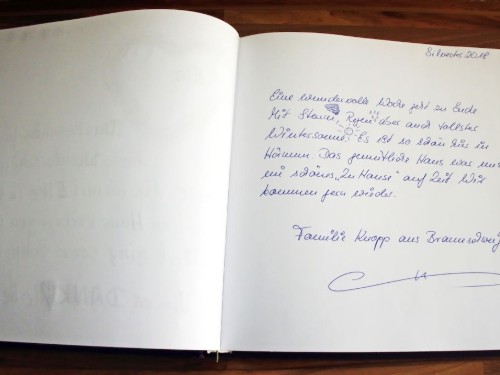 Silvester 2018
Eine wundervolle Woche geht zu Ende
Mit Sturm, Regen aber auch tollster
Wintersonne. Es ist so schön hier in
Das gemütliche Haus war uns
ein schönes "zu Hause" auf Zeit. Wir
kommen gern wieder.
Familie Knopp aus Braunschweig
DANKE